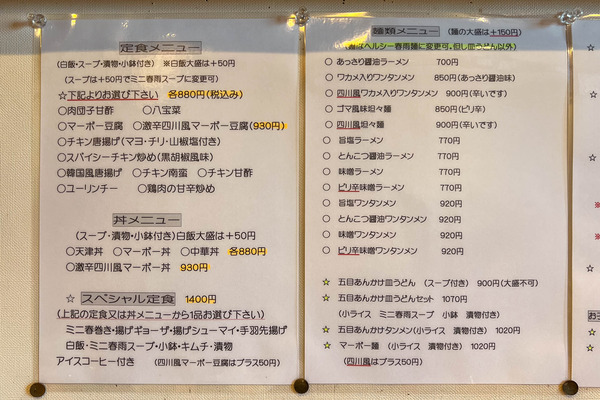 定食メニュー
(白飯・スープ・漬物・小鉢付き) ※白飯大盛は+50円
(スープは+50円でミニ春雨スープに変更可)
☆下記よりお選び下さい 各880円(税込み)
○肉団子甘酢 ○八宝菜
○マーボー豆腐 ○激辛四川風マーボー豆腐(930円)
○チキン唐揚げ(マヨ・チリ・山椒塩付き)
○スパイシーチキン炒め(黒胡椒風味)
○韓国風唐揚げ ○チキン南蛮 ○チキン甘酢
○ユーリンチー ○鶏肉の甘辛炒め
丼メニュー
(スープ・漬物・小鉢付き)白飯大盛は+50円
○天津丼 ○マーボー丼 ○中華丼 各880円
○激辛四川風マーボー丼 930円
☆ スペシャル定食 1400円
(上記の定食又は丼メニューから1品お選び下さい)
ミニ春巻き・揚げギョーザ・揚げシューマイ・手羽先揚げ
白飯・ミニ春雨スープ・小鉢・キムチ・漬物
アイスコーヒー付き (四川風マーボー豆腐はプラス50円)
麺類メニュー (麺の大盛は+150円)
ヘルシー春雨麺に変更可・但し皿うどん以外)
○ あっさり醤油ラーメン 700円
○ ワカメ入りワンタンメン 850円(あっさり醤油味)
○ 四川風ワカメ入りワンタンメン 900円(辛いです)
○ ゴマ風味坦々麺 850円(ピリ辛)
○ 四川風坦々麺 900円(辛いです)
○ 旨塩ラーメン 770円
○ とんこつ醤油ラーメン 770円
○ 味噌ラーメン 770円
○ ピリ辛味噌ラーメン 770円
○ 旨塩ワンタンメン 920円
○ とんこつ醤油ワンタンメン 920円
○ 味噌ワンタンメン 920円
○ ピリ辛味噌ワンタンメン 920円
☆ 五目あんかけ皿うどん (スープ付き) 900円(大盛不可)
☆ 五目あんかけ皿うどんセット 1070円
(小ライス ミニ春雨スープ 小鉢 漬物付き)
☆ 五目あんかけタンメン(小ライス 漬物付き) 1020円
☆ マーボー麺 (小ライス 漬物付き) 1020円
(四川風はプラス50円)